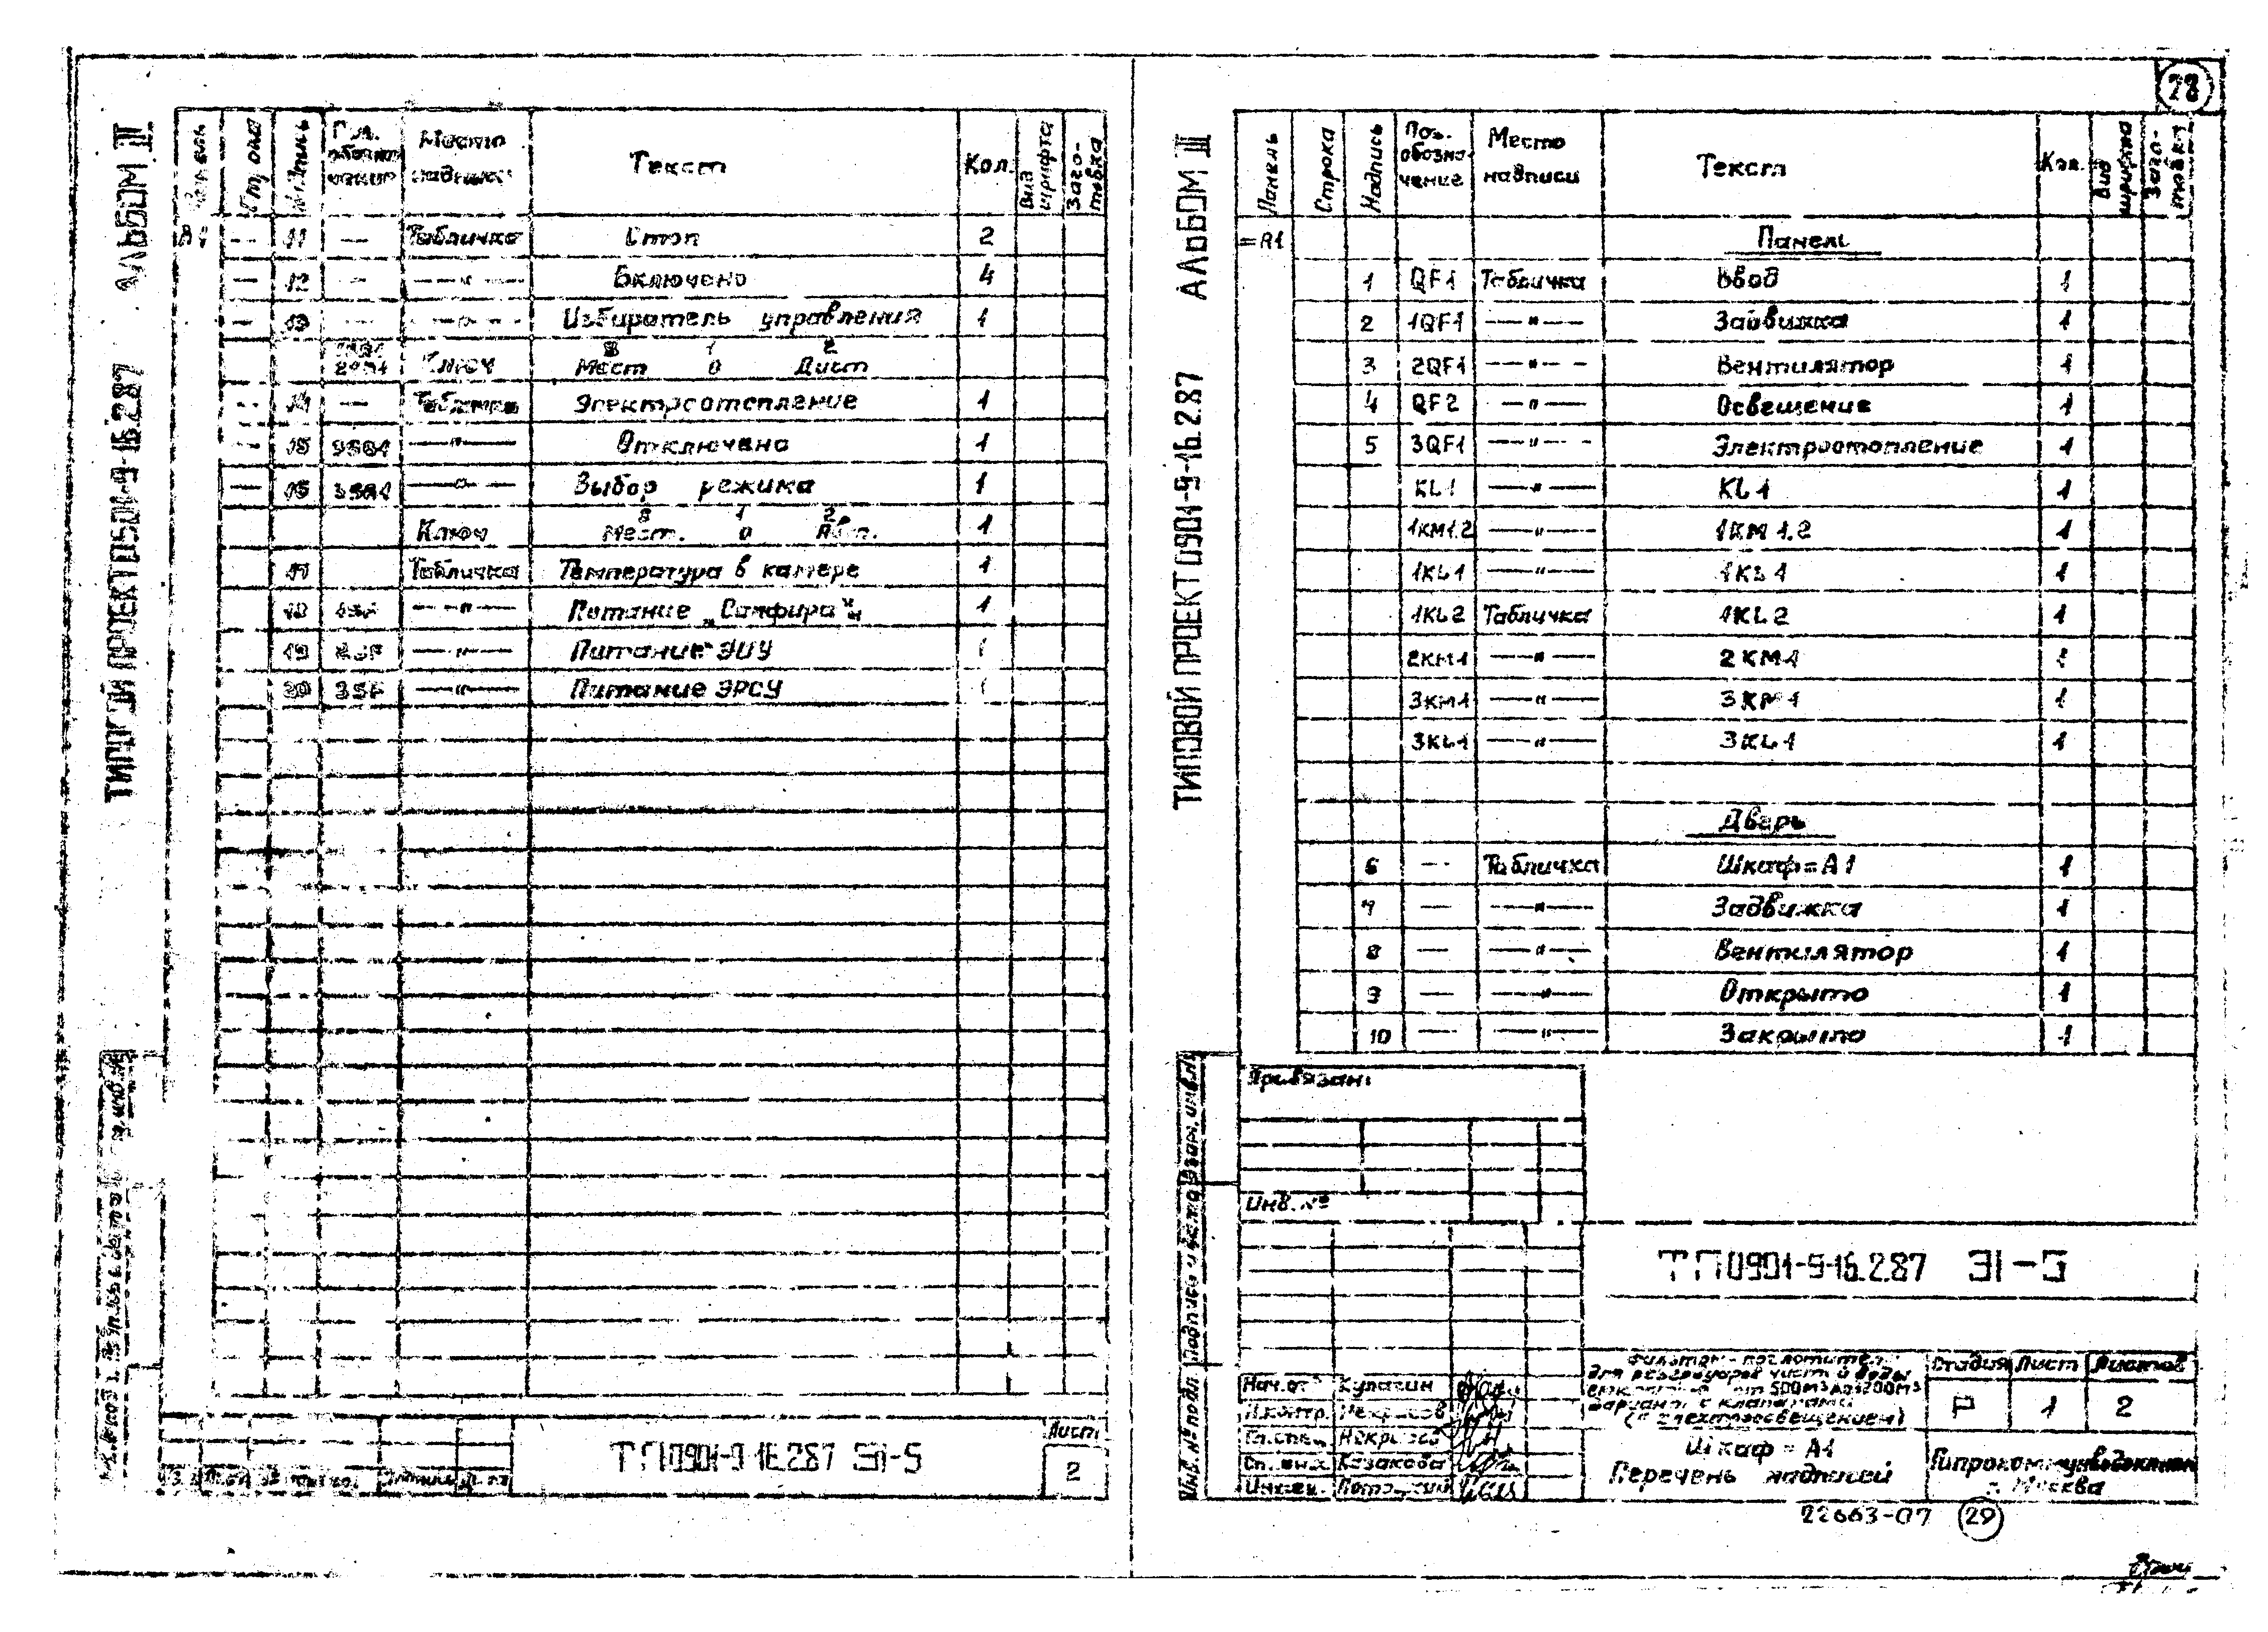 28
АЛЬБОМ III
ТИПОВОЙ ПРОЕКТ 0901-9-16.2.87
Место надписи Текст Кол. Вид шрифта Заго-товка
А1 — 11 — Табличка Стоп 2
— 12 — —"— Включено 4
— 13 — —"— Избиратель управления 1
Ключ Мест 0 Дист
— 14 — Табличка Электроотопление 1
— 15 —"— Отключено 1
— —"— Выбор режима 1
Ключ Мест. 0 Авт. 1
Табличка Температура в камере 1
18 —"— Питание „Сапфира" 1
19 —"— Питание ЭИУ 1
20 3SF —"— Питание ЭРСУ 1
ТП 0901-9-16.2.87 Э1-5
Лист
2
АЛЬБОМ III
ТИПОВОЙ ПРОЕКТ 0901-9-16.2.87
Панель Строка Надпись Поз. обозна-чение Место надписи Текст Кол. Вид шрифта Заго-товка
=А1 Панель
1 QF1 Табличка Ввод 1
2 1QF1 —"— Задвижка 1
3 2QF1 —"— Вентилятор 1
4 QF2 —"— Освещение 1
5 3QF1 —"— Электроотопление 1
KL1 —"— KL1 1
1KM1.2 —"— 1KM1.2 1
1KL1 —"— 1KL1 1
1KL2 Табличка 1KL2 1
2KM1 —"— 2KM1 1
3KM1 —"— 3KM1 1
3KL1 —"— 3KL1 1
Дверь
6 — Табличка Шкаф=А1 1
7 — —"— Задвижка 1
8 — —"— Вентилятор 1
9 — —"— Открыто 1
10 — —"— Закрыто 1
Привязан:
Инв. №
Инв. № подл. Подпись и дата Взам. инв. №
ТП 0901-9-16.2.87 Э1-5
Фильтры-поглотители
для резервуаров чистой воды
от 500м³ до 1200м³
Вариант с клапанами
(с электроосвещением)
Стадия Лист Листов
Р 1 2
Нач.от Кулагин
Н.контр. Некрасов
Гл.спец. Некрасов
Казакова
Шкаф=А1
Перечень надписей
Гипрокоммунводоканал
г. Москва
22663-07 29